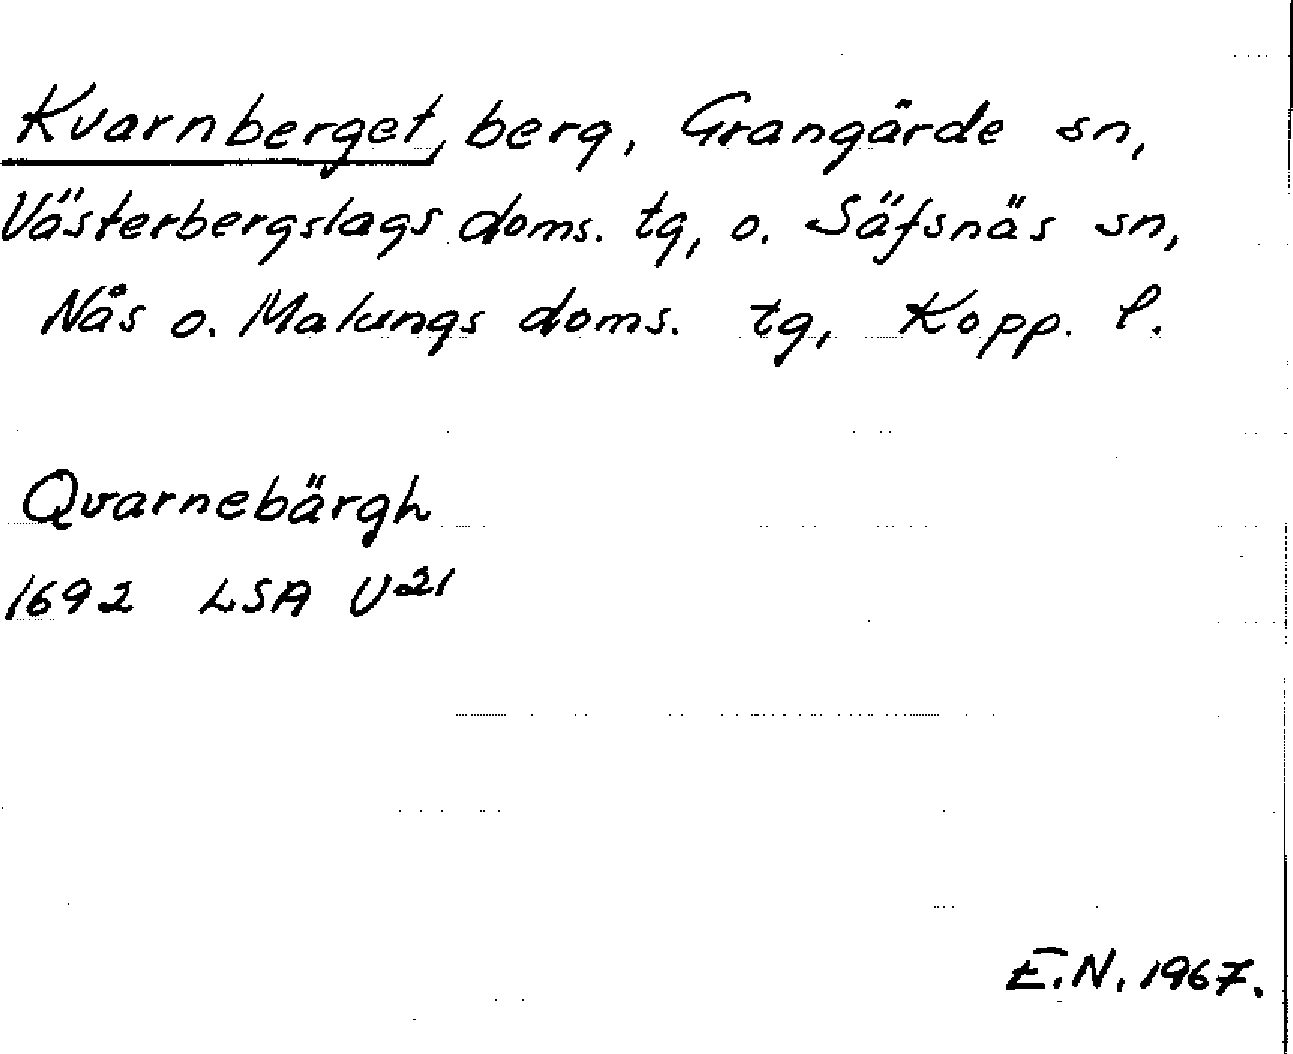 Kvarnberget, berg, Grangärde sn,
Västerbergslags doms. tg, o. Säfsnäs sn,
Nås o. Malungs doms. tg, Kopp. l.
Qvarnebärgh
1692 LSA U21
E.N. 1967.